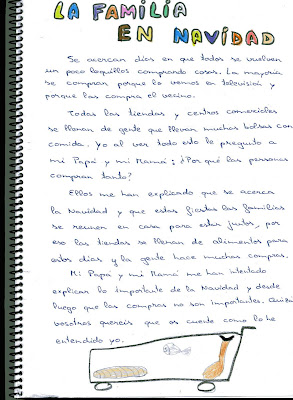 LA FAMILIA
EN NAVIDAD
Se acercan días en que todos se vuelven
un poco loquillos comprando cosas. La mayoría
se compran porque lo vemos en televisión y
porque las compra el vecino.
Todas las tiendas y centros comerciales
se llenan de gente que llevan muchas bolsas con
comida. Yo al ver todo esto le pregunto a
mi Papá y mi Mamá: ¿Por qué las personas
compran tanto?
Ellos me han explicado que se acerca
la Navidad y que estas fiestas las familias
se reunen en casa para estar juntos, por
eso las tiendas se llenan de alimentos para
estos días y la gente hace muchas compras.
Mi Papá y mi Mamá me han intentado
explicar lo importante de la Navidad y desde
luego que las compras no son importantes. Quizá
vosotros quereis que os cuente como lo he
entendido yo.